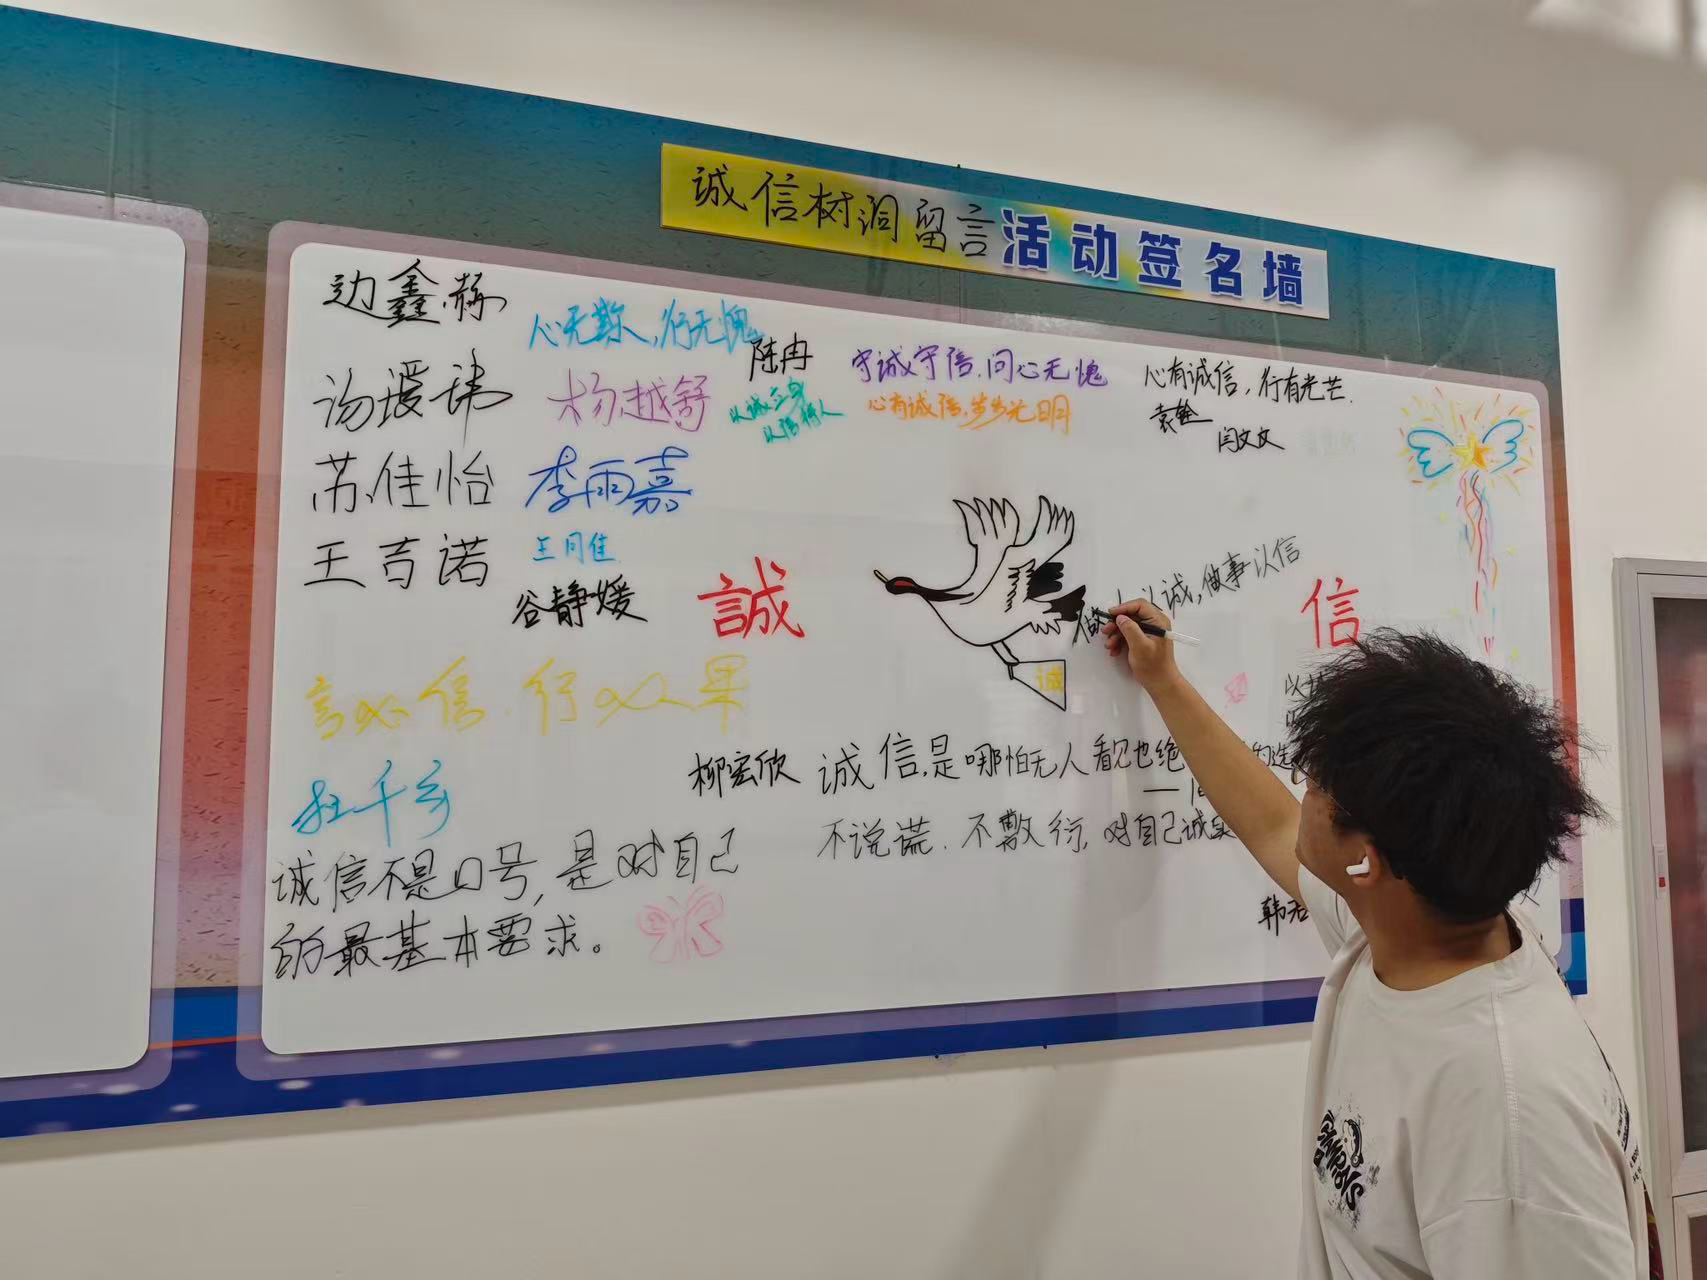 诚信树洞留言活动签名墙
边鑫
心无欺,行无愧
陈冉
守诚守信,问心无愧
心有诚信,行有光芒.
汤瑷玮
杨越舒
以诚立身
以信待人
心有诚信,步步光明
闫文文
苏佳怡
李雨嘉
王吉诺
王同佳
谷静媛
誠
以诚,做事以信
信
诚
言必信,行必果
柳宏欣
诚信是哪怕无人看见也绝
不说谎.不敷衍,对自己诚实
杜千
诚信不是口号,是对自己
的最基本要求。
韩